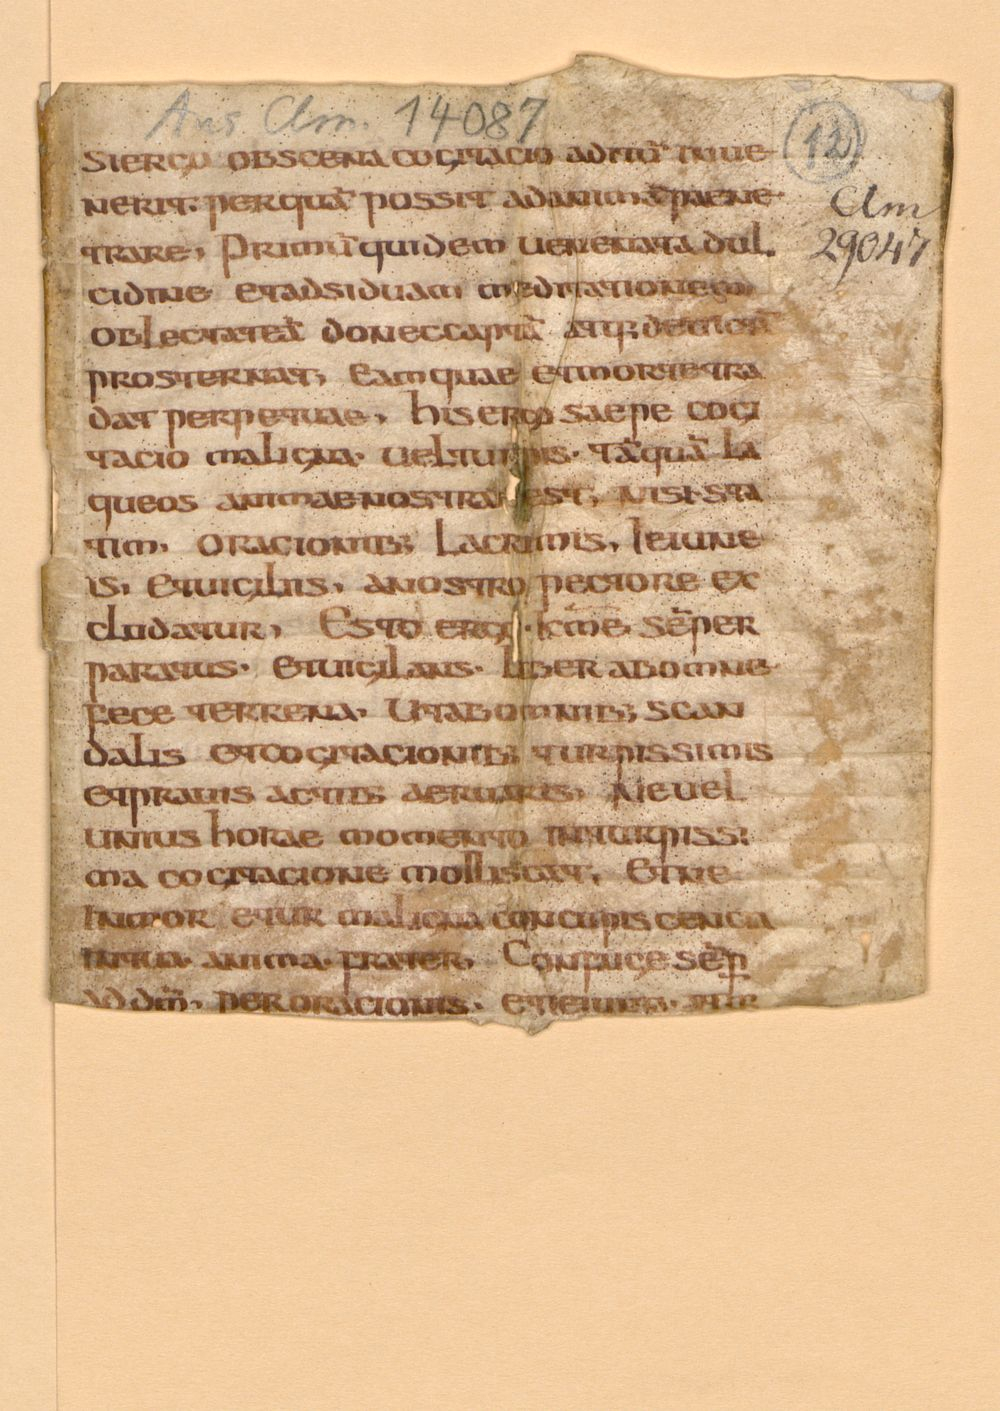 Aus Clm. 14087
12
Clm
29047
si ergo obscena cogitacio aditū inue
nerit. per quā possit ad animā paene
trare, Primū quidem uenenata dul
cidine et adsiduam meditationem
oblectat eā donec captā atq; deuictā
prosternat, Eam quae et morte tra
dat perpetuae, his ergo saepe cogi
tacio maligna. uel turpis. tāquā la
queos animae nostrae est, Nisi sta
tim, oracionib; lacrimis, Ieiune
is, et uigiliis, a nostro pectore ex
cludatur, Esto ergo. kme, sēper
paratus. et uigilans. liber ab omne
fece terrena. Ut ab omnib; scan
dalis et cogitacionib; turpissimis
et prauis actib; Ne uel
unius horae momento in turpissi
ma cogitacione molliscat, Et ne
inmoretur maligna concupiscencia
in tua anima frater, Confuge sēp
ad dm̄, per oracionis. et ieiunia.